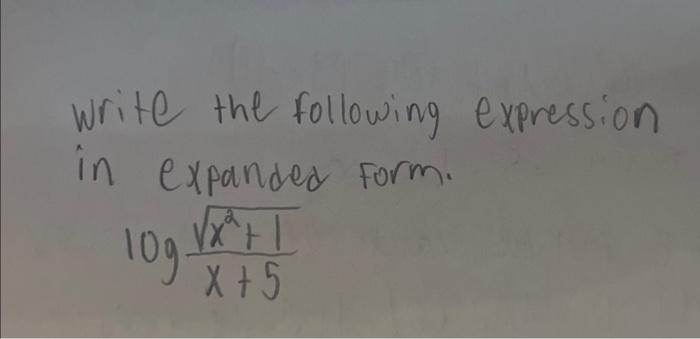 Write the following expression
in expanded form.
log \frac{\sqrt{x^2+1}}{x+5}